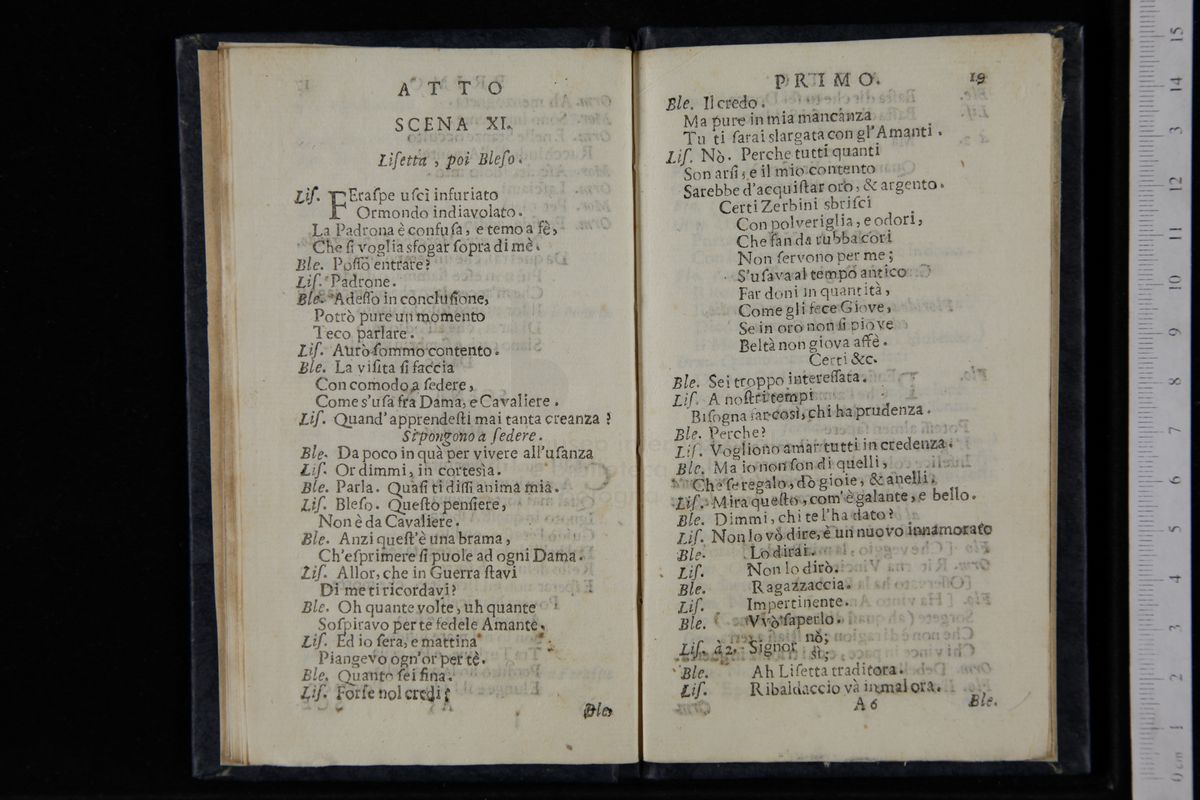 ATTO
SCENA XI.
Liſetta, poi Bleſo.
Liſ. FEraſpe uſcì infuriato
Ormondo indiavolato.
La Padrona è confuſa, e temo a fè,
Che ſi voglia sfogar ſopra di mè.
Ble. Poſſo entrare?
Liſ. Padrone.
Ble. Adeſſo in concluſione,
Potrò pure un momento
Teco parlare.
Liſ. Aurò ſommo contento.
Ble. La viſita ſi faccia
Con comodo, a ſedere,
Come s'uſa fra Dama, e Cavaliere.
Liſ. Quand' apprendeſti mai tanta creanza?
Si pongono a ſedere.
Ble. Da poco in quà per vivere all'uſanza
Liſ. Or dimmi, in cortesìa.
Ble. Parla. Quàſi ti diſſi anima mia.
Liſ. Bleſo. Queſto penſiere,
Non è da Cavaliere.
Ble. Anzi queſt'è una brama,
Ch'eſprimere ſi puole ad ogni Dama.
Liſ. Allor, che in Guerra ſtavi
Di me ti ricordavi?
Ble. Oh quante volte, uh quante
Soſpiravo per te fedele Amante.
Liſ. Ed io ſera, e mattina
Piangevo ogn'or per tè.
Ble. Quanto ſei fina.
Liſ. Forſe nol credi?
Ble.
PRIMO. 19
Ble. Il credo.
Ma pure in mia mancanza
Tu ti ſarai slargata con gl'Amanti.
Liſ. Nò. Perche tutti quanti
Son arſi, e il mio contento
Sarebbe d'acquiſtar oro, & argento.
Certi Zerbini sbriſci
Con polveriglia, e odori,
Che fan da rubba cori
Non ſervono per me;
S'uſava al tempo antico
Far doni in quantità,
Come gli fece Giove,
Se in oro non ſi piove
Beltà non giova affè.
Certi &c.
Ble. Sei troppo intereſſata.
Liſ. A noſtri tempi
Biſogna far così, chi ha prudenza.
Ble. Perche?
Liſ. Vogliono amar tutti in credenza.
Ble. Ma io non ſon di quelli,
Che ſe regalo, dò gioie, & anelli.
Liſ. Mira queſto, com'è galante, e bello.
Ble. Dimmi, chi te l'ha dato?
Liſ. Non lo vò dire, è un nuovo innamorato
Ble. Lo dirai.
Liſ. Non lo dirò.
Ble. Ragazzaccia.
Liſ. Impertinente.
Ble. Vvò ſaperlo.
Liſ. à 2. Signor nò;
ſì;
Ble. Ah Liſetta traditora.
Liſ. Ribaldaccio và in mal ora.
A 6 Ble.